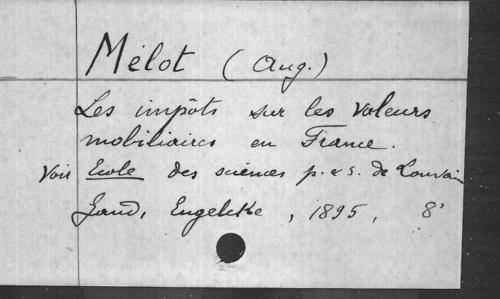 Mélot (Aug.)
Les impôts sur les valeurs
mobiliaires en France.
Voir Ecole des sciences p. & s. de Louvain
Gand, Engelcke, 1895, 8°